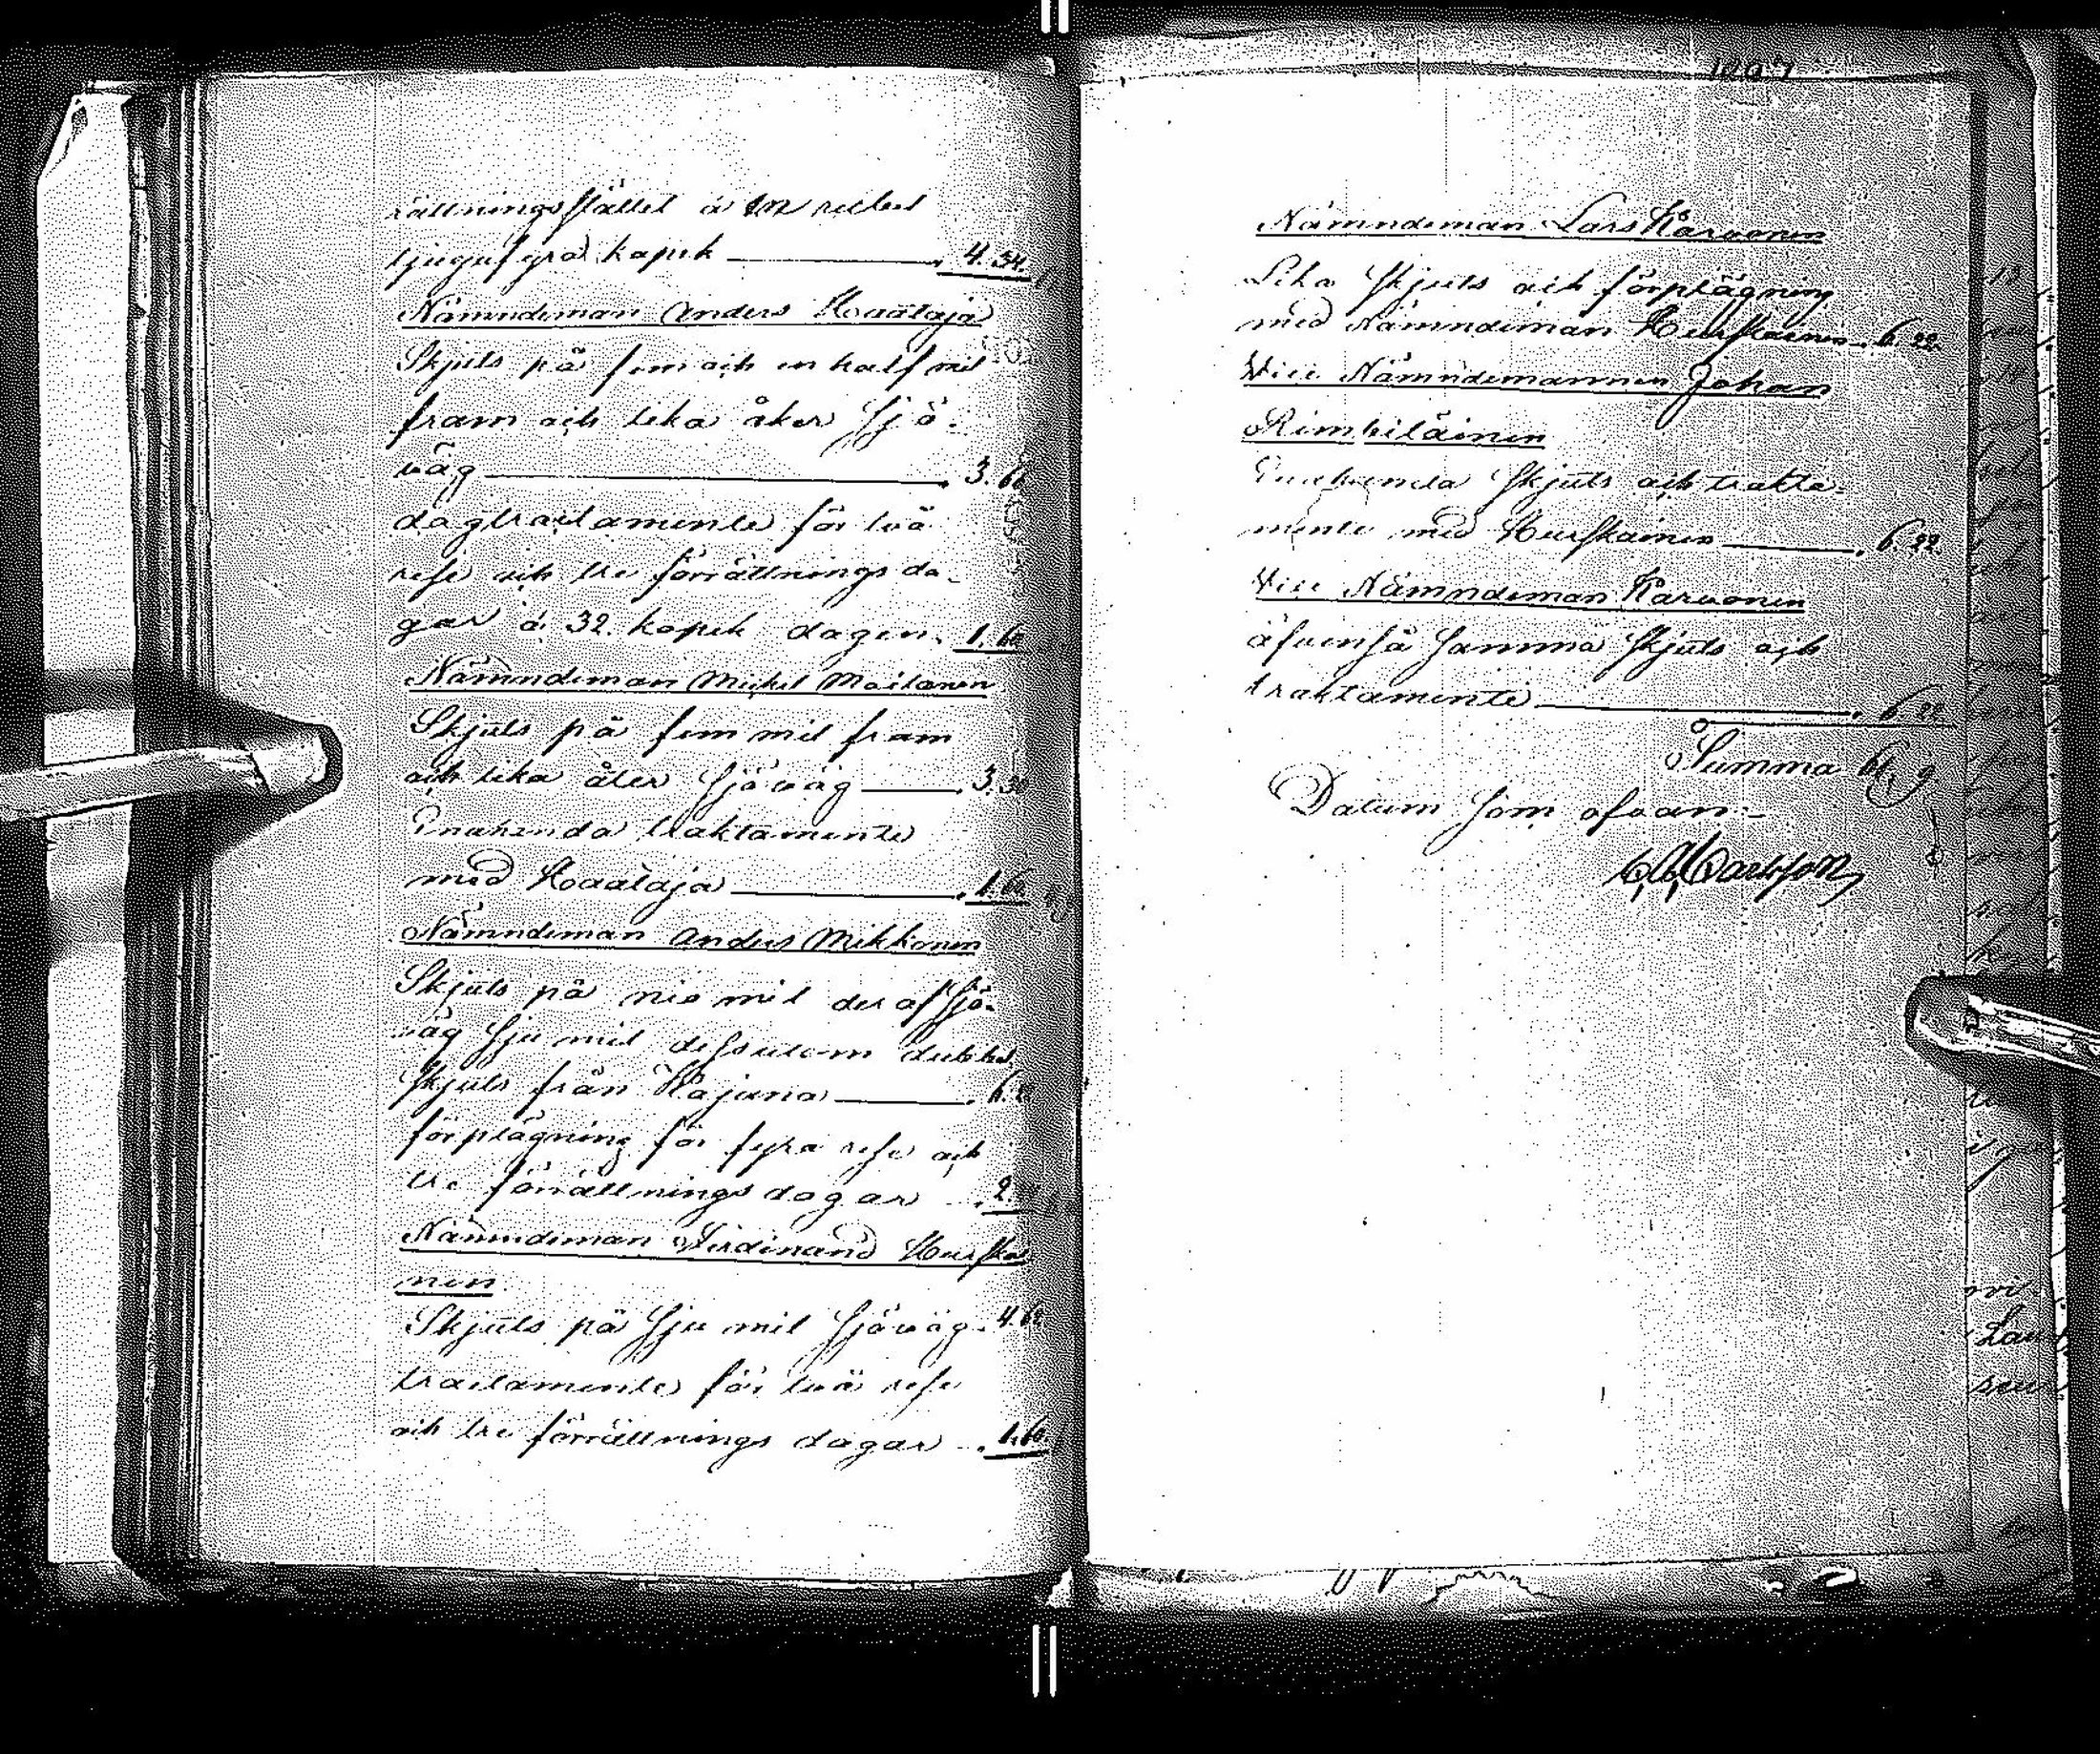 rättningsstället á en rubel
tjugufyra kopek 4.34.
Nämndeman Anders Haataja
Skjuts på fem och en half mil
fram och lika åter Sjö-
väg 3.66
dagtractamente för två
rese och tre förrättnings da-
gar á 32. kopek dagen. 1.60
Nämndeman Michel Moilanen
Skjuts på fem mil fram
och lika åter Sjöväg 3.30
Enahanda traktamente
med Haataja 1.60
Nämndeman Anders Mikkonen
Skjuts på nio mil deraf Sjö-
väg Sju mil dessutom dubbel
Skjuts från Kajana 6.
förplägning för fyra rese och
tre förrättnings dagar 2.
Nämndeman Ferdinand Hurskai
nen
Skjuts på Sju mil Sjöväg. 4.62
tractamente för två rese
och tre förrättnings dagar 1.60.
Nämndeman Lars Karvonen
Lika Skjuts och förplägning
med Nämndeman Hurskainen 6.22.
Vice Nämndemannen Johan
Rimpiläinen
Enahanda Skjuts och trakta-
mente med Hurskainen 6.22.
Vice Nämndeman Karvonen
äfvenså Samma Skjuts och
traktamente 6.22
Summa 61, 9
Datum Som ofvan.
Carlsson